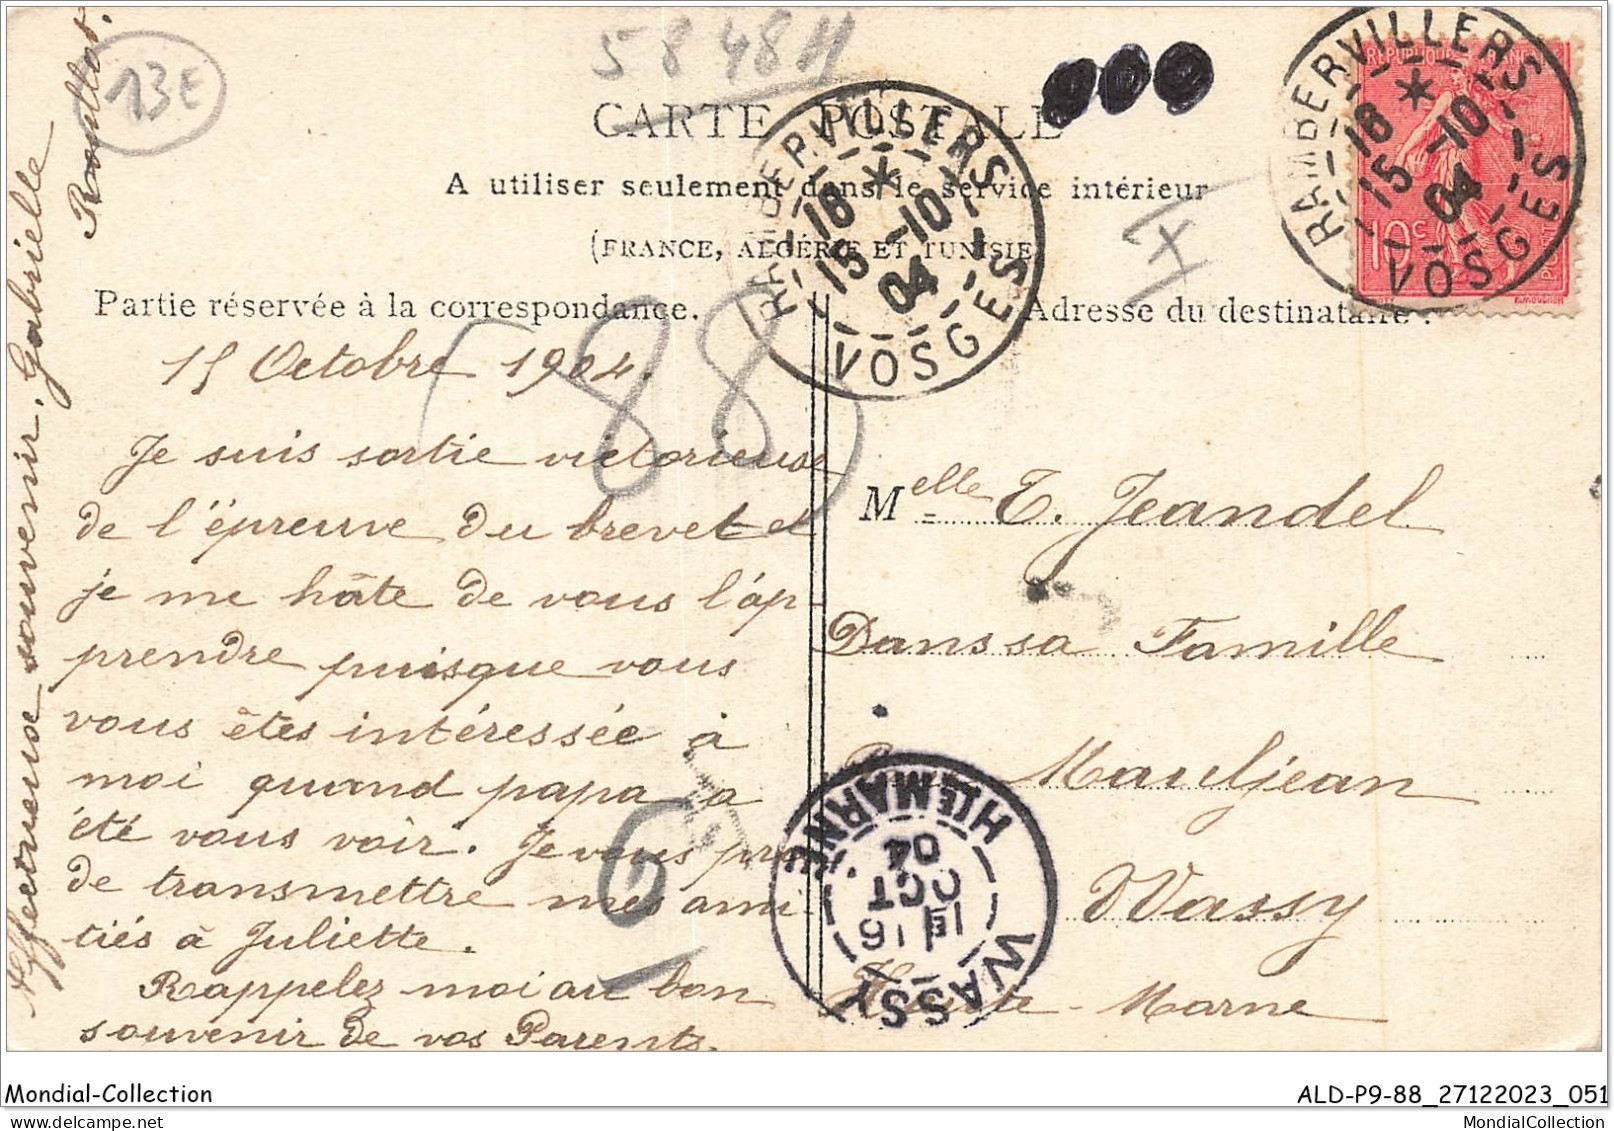 13E
5848H
CARTE POSTALE
A utiliser seulement dans le service intérieur
(FRANCE, ALGÉRIE ET TUNISIE)
RAMBERVILLERS
18 *
15 -10
04
VOSGES
RAMBERVILLERS
18 *
15 -10
04
VOSGES
10c
POSTES
Partie réservée à la correspondance.
Adresse du destinataire.
(88)
15 Octobre 1904.
Je suis sortie victorieuse
de l'épreuve du brevet et
je me hâte de vous l'ap-
prendre puisque vous
vous êtes intéressée à
moi quand papa a
été vous voir. Je vous prie
de transmettre mes ami-
tiés à Juliette.
Rappelez moi au bon
souvenir de vos Parents.
Affectueuse souvenir. Gabrielle
Melle T. Jeandel
Dans sa Famille
Mauljean
Wassy
Haute-Marne
WASSY
HTE MARNE
1E
16
OCT
04
Mondial-Collection
ALD-P9-88_27122023_051
MondialCollection